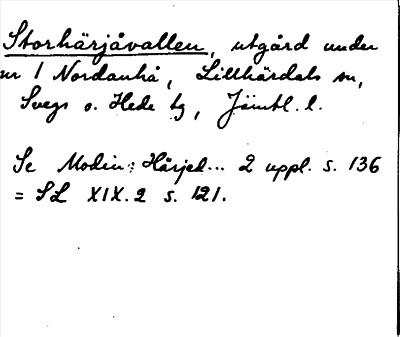 Storhärjåvallen, utgård under
nr 1 Nordanhå, Lillhärdals sn,
Svegs o. Hede tg, Jämtl. l.
Se Modin: Härjed... 2 uppl. s. 136
= SL XIX.2 s. 121.